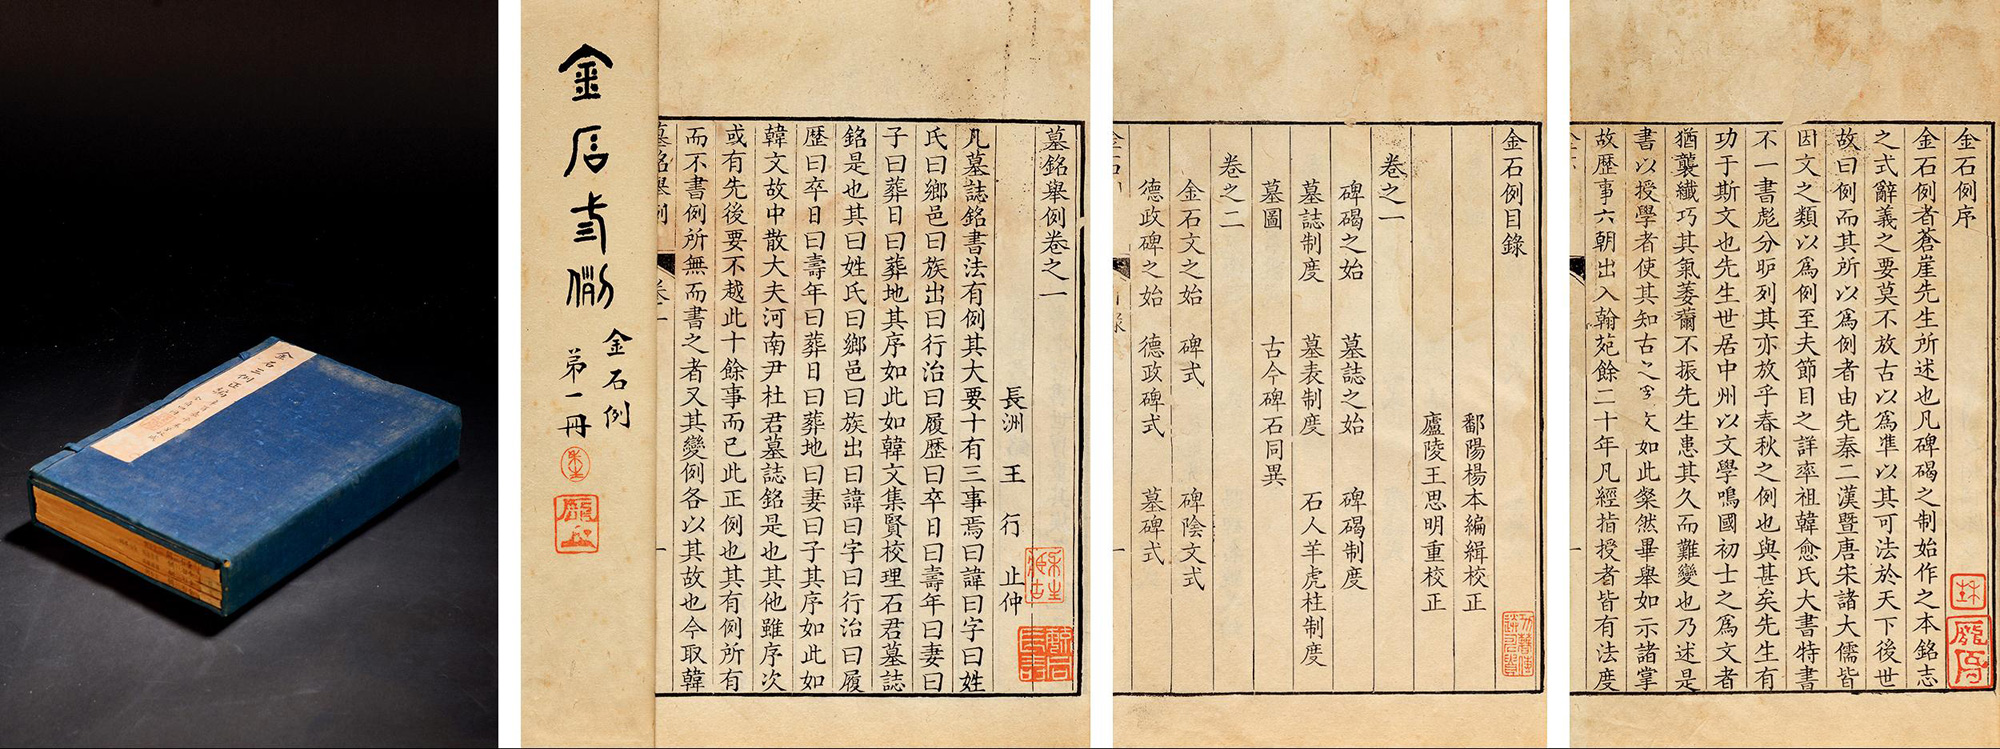 金石三例
金石例
弟一冊
墓銘舉例卷之一
長洲 王 行 止仲
凡墓誌銘書法有例其大要十有三事焉曰諱曰字曰姓
氏曰鄉邑曰族出曰行治曰履歷曰卒日曰壽年曰妻曰
子曰葬日曰葬地其序如此如韓文集賢校理石君墓誌
銘是也其曰姓氏曰鄉邑曰族出曰諱曰字曰行治曰履
歷曰卒日曰壽年曰葬日曰葬地曰妻曰子其序如此如
韓文故中散大夫河南尹杜君墓誌銘是也其他雖序次
或有先後要不越此十餘事而已此正例也其有例所有
而不書例所無而書之者又其變例各以其故也今取韓
墓銘舉例 卷一 一
金石例目錄
鄱陽楊本編緝校正
廬陵王思明重校正
卷之一
碑碣之始 墓誌之始 碑碣制度
墓誌制度 墓表制度 石人羊虎柱制度
墓圖 古今碑石同異
卷之二
金石文之始 碑式 碑陰文式
德政碑之始 德政碑式 墓碑式
金石例序
金石例者蒼崖先生所述也凡碑碣之制始作之本銘志
之式辭義之要莫不放古以爲準以其可法於天下後世
故曰例而其所以爲例者由先秦二漢暨唐宋諸大儒皆
因文之類以爲例至夫節目之詳率祖韓愈氏大書特書
不一書彪分昈列其亦放乎春秋之例也與甚矣先生有
功于斯文也先生世居中州以文學鳴國初士之爲文者
猶襲纖巧其氣萎薾不振先生患其久而難變也乃述是
書以授學者使其知古之爲文如此粲然畢舉如示諸掌
故歷事六朝出入翰苑餘二十年凡經指授者皆有法度